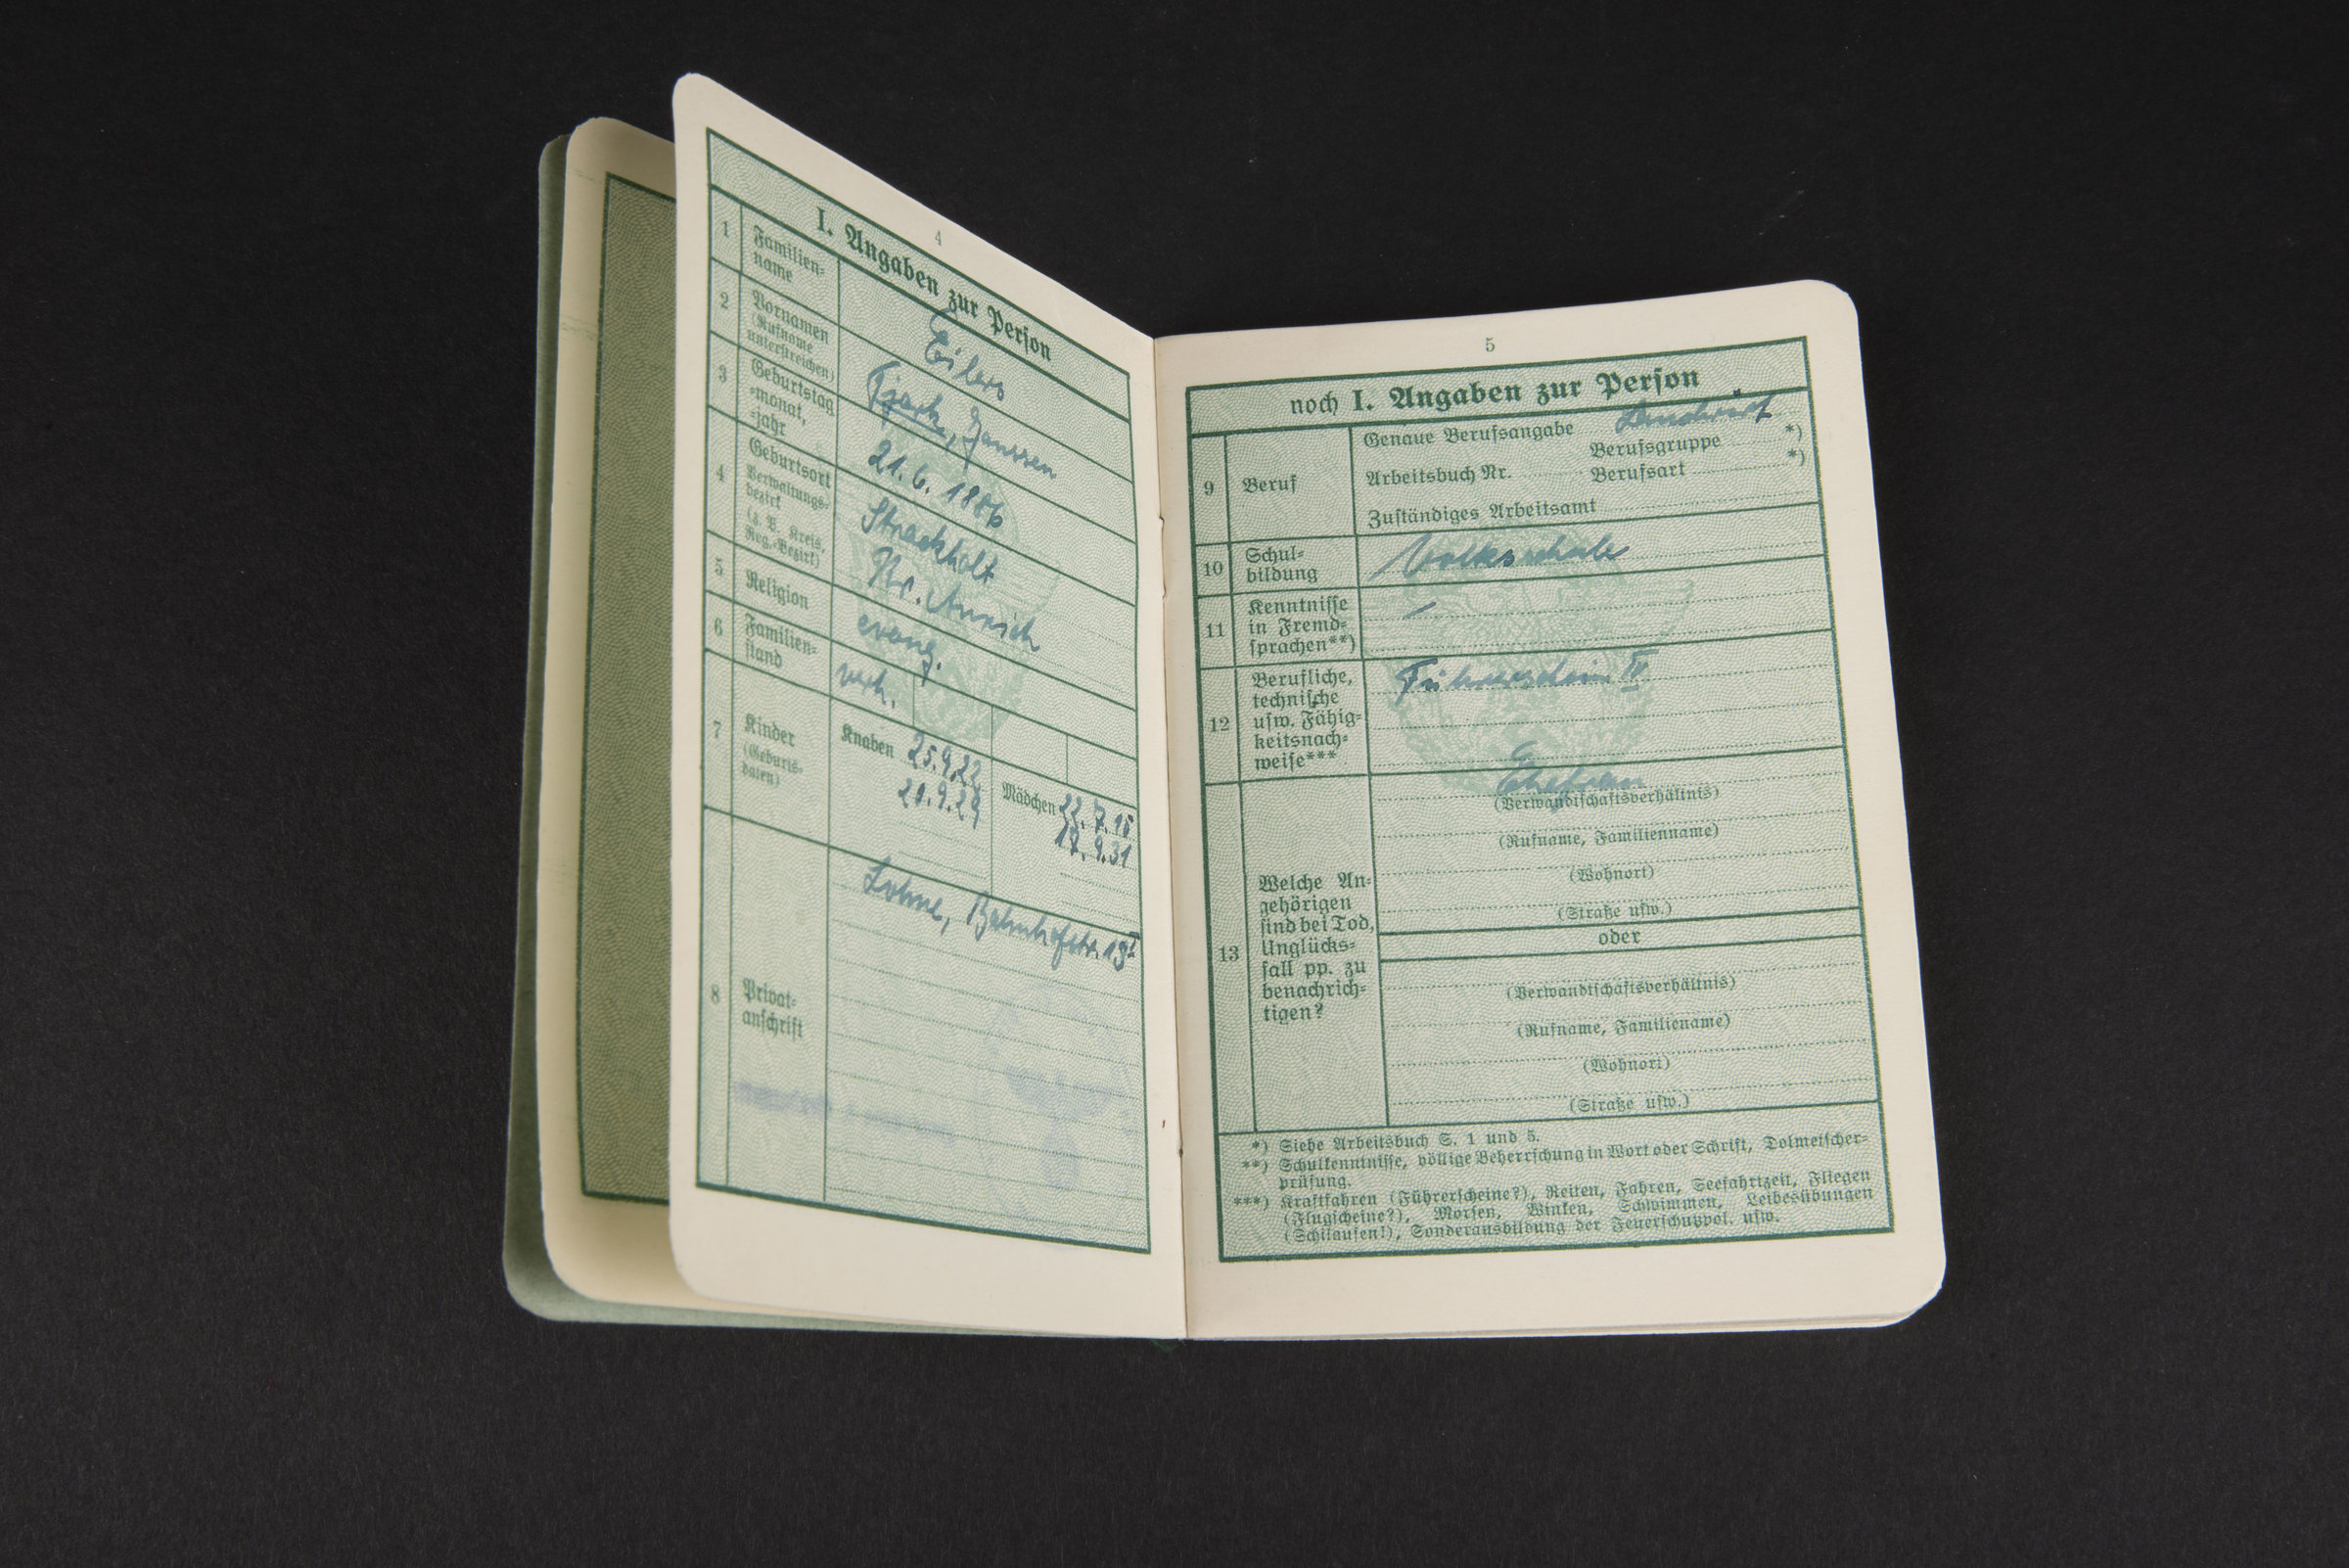 4
I. Angaben zur Person
1 Familien-
name
Eilers
2 Vornamen
(Rufname
unterstreichen)
Tjark, Janssen
3 Geburtstag
-monat,
-jahr
21. 6. 1886
4 Geburtsort
Verwaltungs-
bezirk
(z. B. Kreis,
Reg.-Bezirk)
Strackholt
Kr. Aurich
5 Religion
evang.
6 Familien-
stand
verh.
7 Kinder
(Geburts-
daten)
Knaben 25.9.22
20.9.29
Mädchen 22.7.15
17.9.31
8 Privat-
anschrift
Lohne, Bahnhofstr. 13
5
noch I. Angaben zur Person
9 Beruf
Genaue Berufsangabe Landwirt
Berufsgruppe *)
Arbeitsbuch Nr. Berufsart *)
Zuständiges Arbeitsamt
10 Schul-
bildung
Volksschule
11 Kenntnisse
in Fremd-
sprachen**)
–
12 Berufliche,
technische
usw. Fähig-
keitsnach-
weise***
Führerschein IV
13 Welche An-
gehörigen
sind bei Tod,
Unglücks-
fall pp. zu
benachrich-
tigen?
Ehefrau
(Verwandtschaftsverhältnis)
(Rufname, Familienname)
(Wohnort)
(Straße usw.)
oder
(Verwandtschaftsverhältnis)
(Rufname, Familiename)
(Wohnort)
(Straße usw.)
*) Siehe Arbeitsbuch S. 1 und 5.
**) Schulkenntnisse, völlige Beherrschung in Wort oder Schrift, Dolmetscher-
prüfung.
***) Kraftfahren (Führerscheine?), Reiten, Fahren, Seefahrtzeit, Fliegen
(Flugscheine?), Morsen, Winken, Schwimmen, Leibesübungen
(Schilaufen!), Sonderausbildung der Feuerschutzpol. usw.